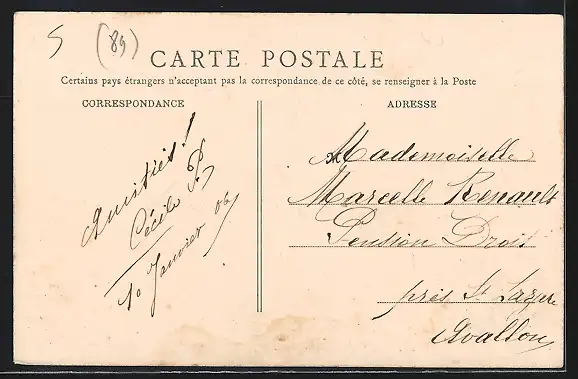 5 (89)
CARTE POSTALE
Certains pays étrangers n'acceptant pas la correspondance de ce côté, se renseigner à la Poste
CORRESPONDANCE
ADRESSE
Amitiés !
Cécile P.
10 Janvier 06
Mademoiselle
Marcelle Renault
Pension Droit
près St Lazare
Avallon